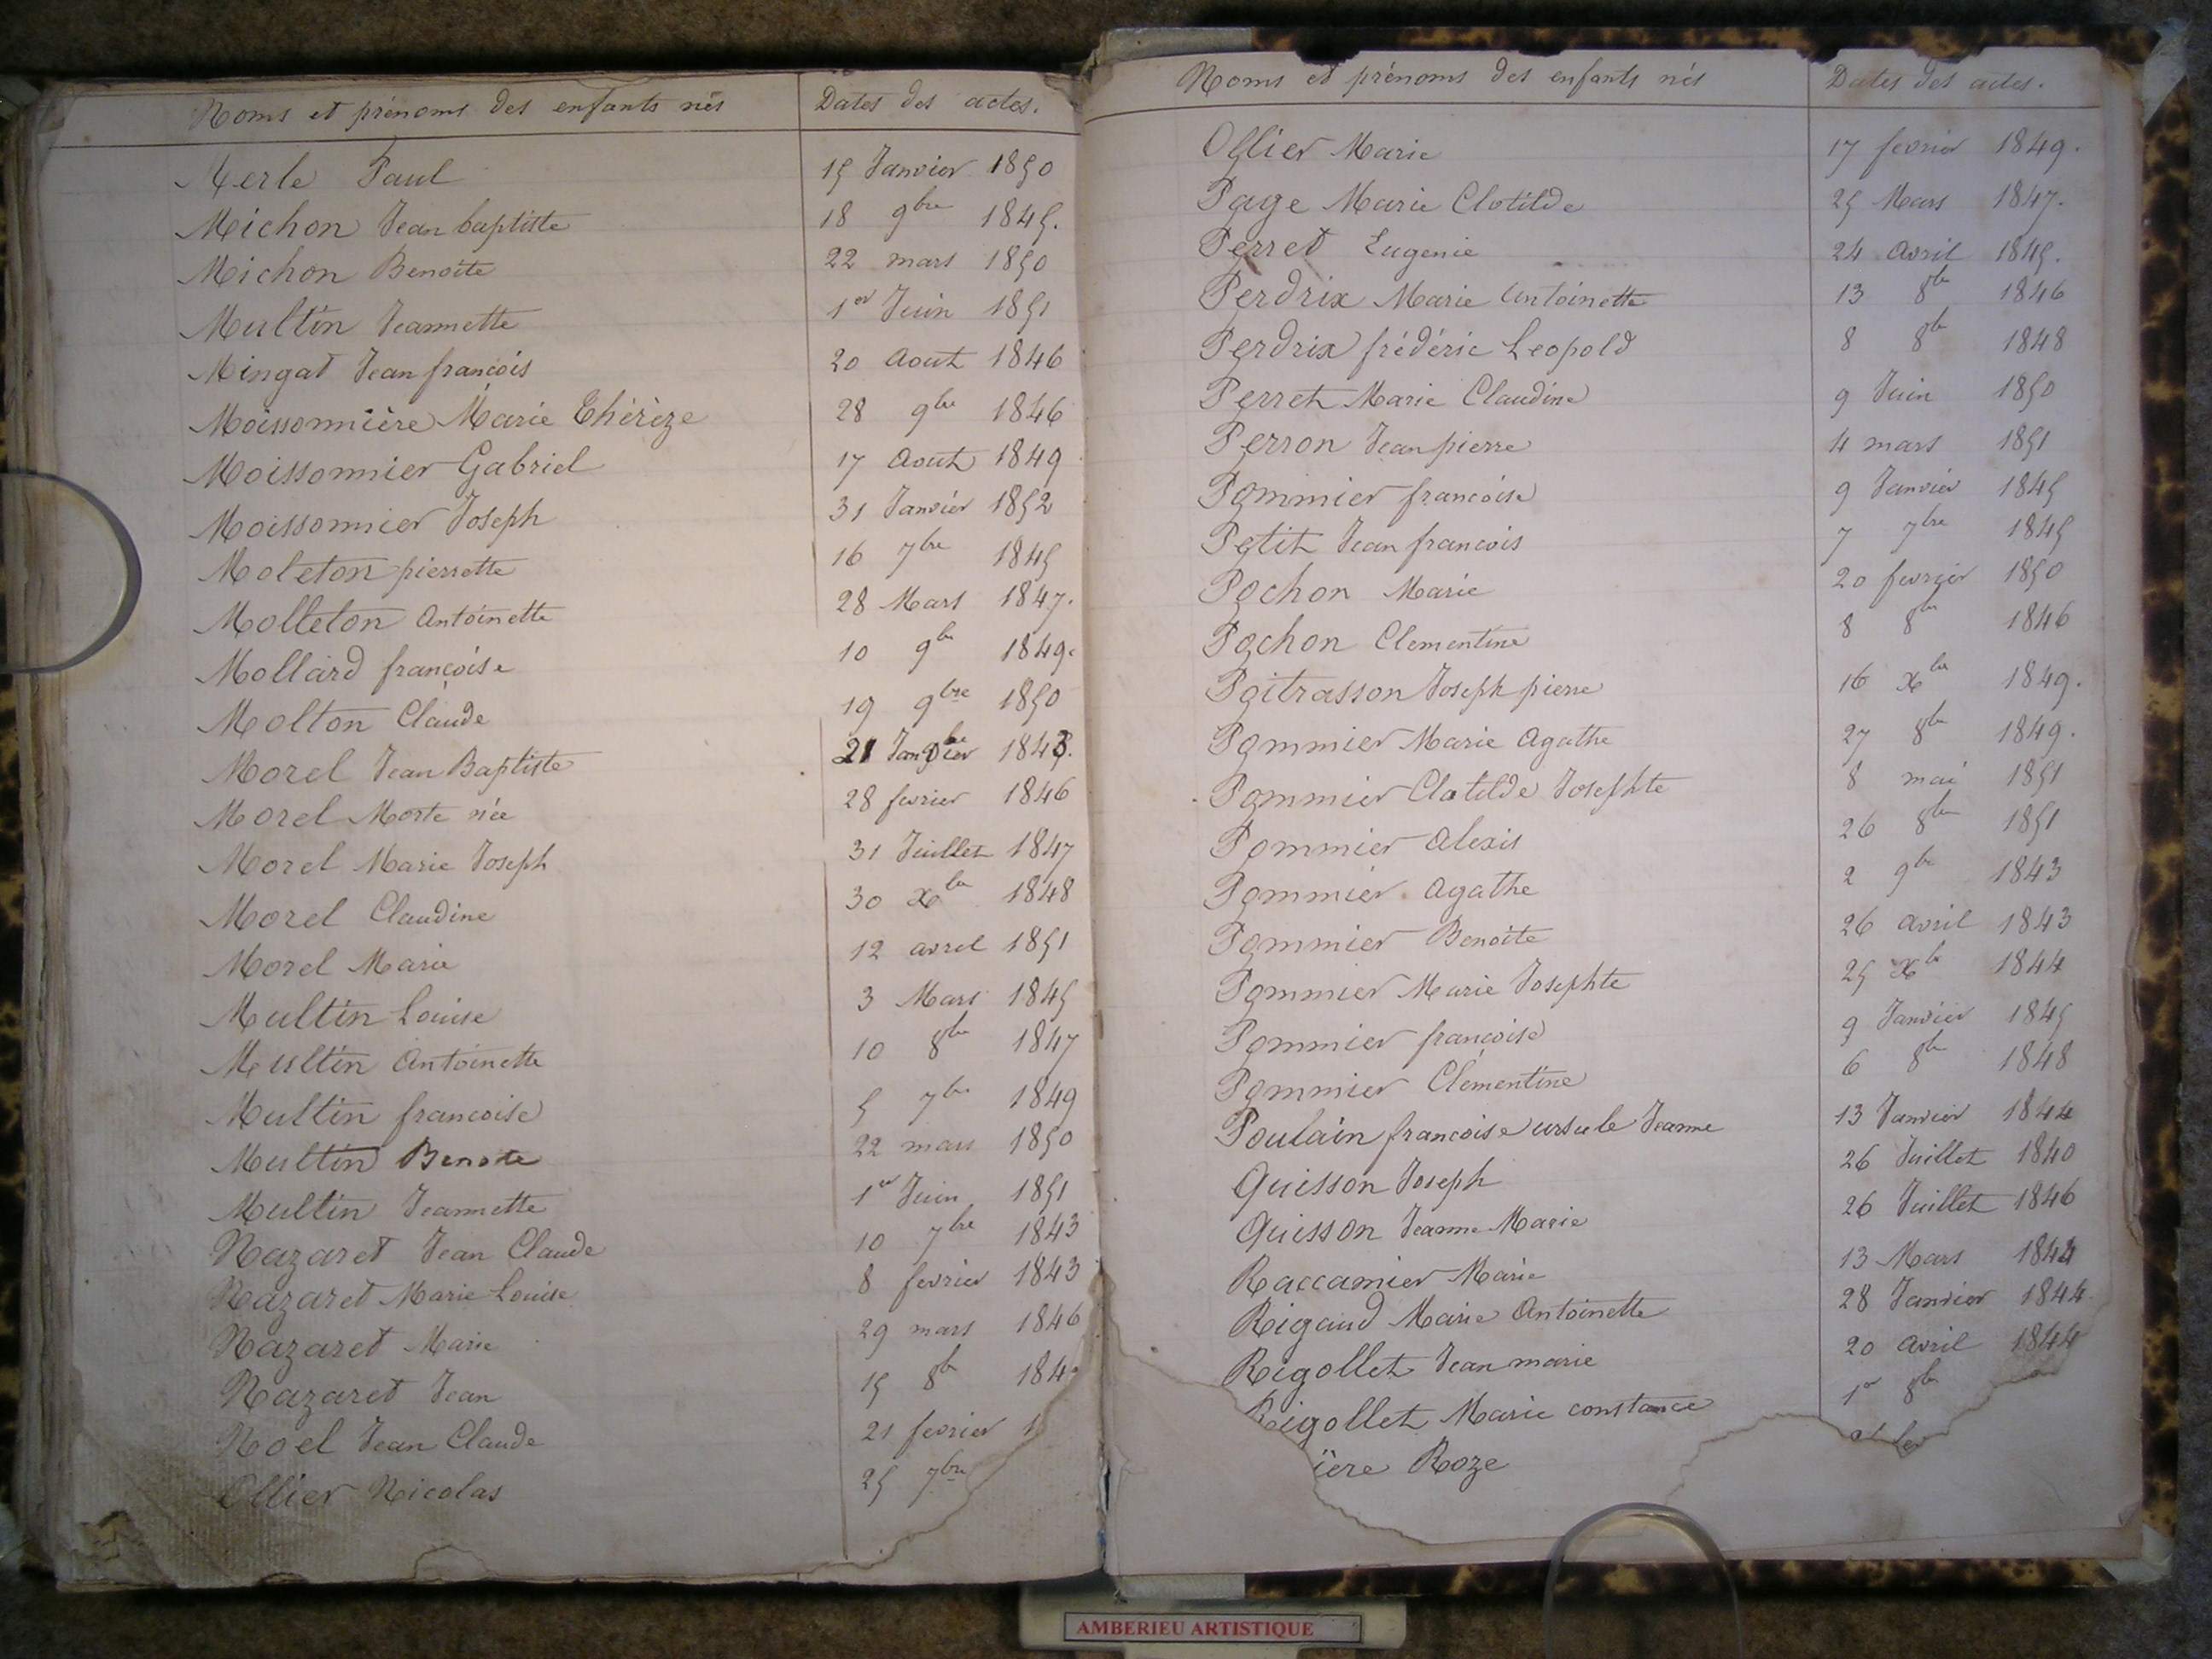 Noms et prénoms des enfants nés Dates des actes.
Merle Paul 15 Janvier 1850
Michon Jean baptiste 18 9bre 1845.
Michon Benoite 22 mars 1850
Multin Jeannette 1er Juin 1851
Mingat Jean francois 20 Aout 1846
Moissonnière Marie Thérèze 28 9bre 1846
Moissonnier Gabriel 17 Aout 1849
Moissonnier Joseph 31 Janvier 1852
Moleton pierrette 16 7bre 1845
Molleton Antoinette 28 Mars 1847.
Mollard françoise 10 9bre 1849.
Molton Claude 19 9bre 1850
Morel Jean Baptiste 21
Morel Morte née 28 fevrier 1846
Morel Marie Joseph 31 Juillet 1847
Morel Claudine 30 xbre 1848
Morel Marie 12 avril 1851
Multin Louise 3 Mars 1845
Multin Antoinette 10 8bre 1847
Multin francoise 5 7bre 1849
Multin Benoite 22 mars 1850
Multin Jeannette 1er Juin 1851
Nazaret Jean Claude 10 7bre 1843
Nazaret Marie Louise 8 fevrier 1843
Nazaret Marie 29 mars 1846
Nazaret Jean 15 8bre 184
Noel Jean Claude 21 fevrier 1
Ollier Nicolas 25 7bre
Noms et prénoms des enfants nés Dates des actes.
Ollier Marie 17 fevrier 1849.
Page Marie Clotilde 25 Mars 1847.
Perret Eugenie 24 Avril 1845.
Perdrix Marie Antoinette 13 8bre 1846
Perdrix frédéric Leopold 8 8bre 1848
Perret Marie Claudine 9 Juin 1850
Perron Jean pierre 4 mars 1851
Pommier francoise 9 Janvier 1845
Petit Jean francois 7 7bre 1845
Pochon Marie 20 fevrier 1850
Pochon Clementine 8 8bre 1846
Poitrasson Joseph pierre 16 xbre 1849.
Pommier Marie Agathe 27 8bre 1849.
Pommier Clotilde Josephte 8 mai 1851
Pommier Alexis 26 8bre 1851
Pommier Agathe 2 9bre 1843
Pommier Benoite 26 Avril 1843
Pommier Marie Josephte 25 xbre 1844
Pommier françoise 9 Janvier 1845
Pommier Clémentine 6 8bre 1848
Poulain francoise ursule Jeanne 13 Janvier 1844
Quisson Joseph 26 Juillet 1840
Quisson Jeanne Marie 26 Juillet 1846
Raccamier Marie 13 Mars
Rigaud Marie Antoinette 28 Janvier 1844
Rigollet Jean marie 20 Avril 1844
Rigollet Marie constance 1er 8bre
ière Roze
AMBERIEU ARTISTIQUE